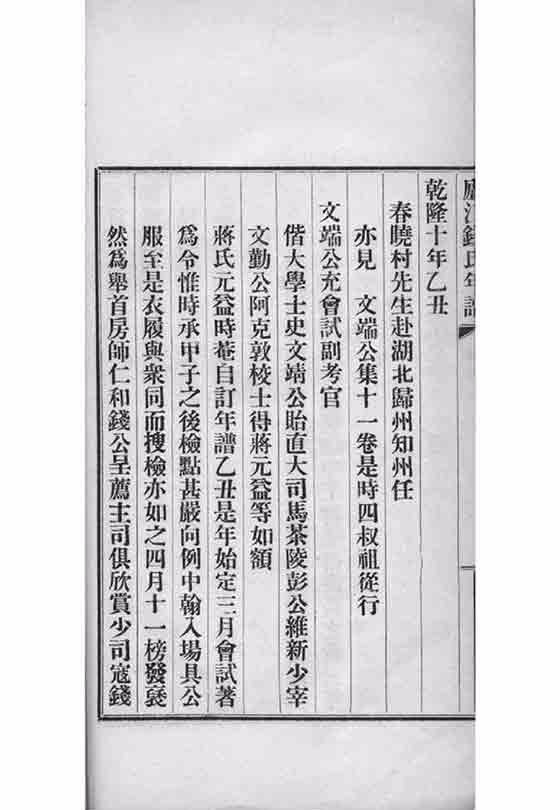 廬江錢氏年譜
乾隆十年乙丑
春曉村先生赴湖北歸州知州任
亦見　文端公集十一卷是時四叔祖從行
文端公充會試副考官
偕大學士史文靖公貽直大司馬茶陵彭公維新少宰
文勤公阿克敦校士得蔣元益等如額
蔣氏元益時菴自訂年譜乙丑是年始定三月會試著
為令惟時承甲子之後檢點甚嚴向例中翰入場具公
服至是衣履與衆同而搜檢亦如之四月十一榜發裦
然為舉首房師仁和錢公呈薦主司俱欣賞少司寇錢